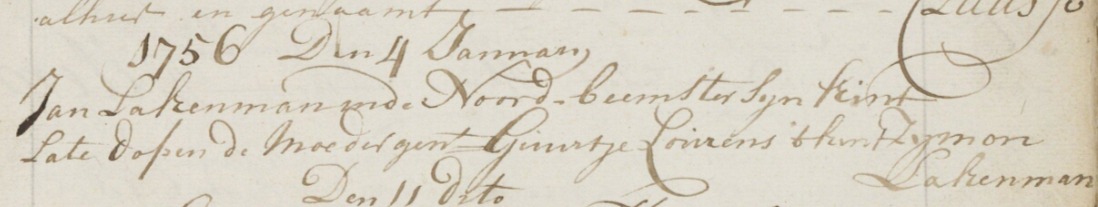 alhier en genaamt — — — — — — — —
1756 Den 4 Januarij
Jan Lakenman inde Noord-beemster syn kint
Late dopen de Moeder gent Guurtje Lourens t kint Zymon
Lakenman
Den 11 dito